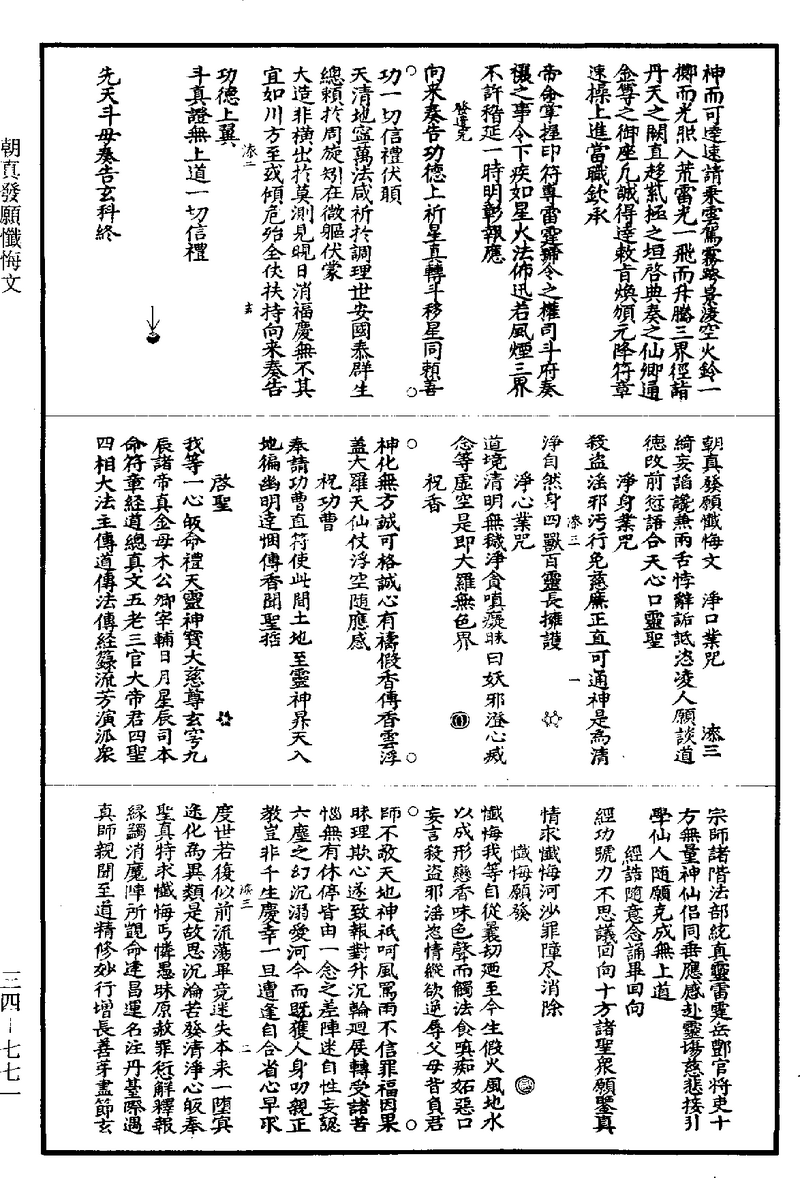 神而可達速請乘雲駕霧路景淩空火鈴一
擲而光照入荒雷光一飛而升騰三界徑詣
丹天之闕直趍紫極之垣啓典奏之仙卿通
金尊之御座凡誠得達敕旨煥頒元降符章
速操上進當職欽承
帝命掌握印符尊雷霆號令之權司斗府奏
禳之事令下疾如星火法佈迅若風煙三界
不許稽延一時明彰報應
發遣完
向来奏告功德上祈星真轉斗移星同頼善
功一切信禮伏願
天清地寧萬法咸祈扵調理世安國泰群生
總頼扵周旋矧在微軀伏蒙
大造非橫出扵莫測見晛日消福慶無不其
宜如川方至或傾危殆全仗扶持向来奏告
功德上翼
斗真證無上道一切信禮
先天斗母奏告玄科終
朝真發願懺悔文
朝真發願懺悔文 淨口業咒
綺妄諂讒兼兩舌悖辭訴詆恣凌人願談道
德改前愆語合天心口靈聖
淨身業咒
殺盜滛邪污行免慈廉正直可通神是為清
淨自然身四獸百靈長擁護
淨心業咒
道境清明無穢淨貪嗔癡昧曰妖邪澄心㓕
念等虛空是即大羅無色界
祝香
神化無方誠可格誠心有禱假香傳香雲浮
蓋大羅天仙仗浮空随應感
祝功曹
奉請功曹直符使此間土地至靈神昇天入
地徧幽明達悃傳香聞聖㫖
啓聖
我等一心皈命禮天靈神寶大慈尊玄穹九
辰諸帝真金母木公卿宰輔日月星辰司本
命符章經道總真文五老三官大帝君四聖
四相大法主傳道傳法傳経籙流芳演派衆
宗師諸階法部統真靈雷霆岳酆官將吏十
方無量神仙侶同垂應感赴靈塲慈悲接引
學仙人随願克成無上道
經誥隨意念誦畢回向
經功號力不思議回向十方諸聖衆願鑒真
情求懺悔河沙罪障尽消除
懺悔願發
懺悔我等自從曩刼廼至今生假火風地水
以成形戀香味色聲而觸法貪嗔痴妬惡口
妄言殺盜邪滛恣情縱欲逆辱父母背負君
師不敬天地神祇呵風罵雨不信罪福因果
昧理欺心遂致報對升沉輪迴展轉受諸苦
惱無有休停皆由一念之差陣迷自性妄認
六塵之幻沉溺愛河今而既獲人身叨親正
教豈非千生慶幸一旦遭逢自合省心早求
度世若復似前流蕩畢竟迷失本来一墮冥
途化為異類是故思沉淪若發清淨心皈奉
聖真特求懺悔丐憐愚昧原赦罪愆解釋報
緣蠲消魔陣所覬命達昌運名注丹臺際遇
真師親聞至道精修妙行增長善芽盡節玄
三四－七七一